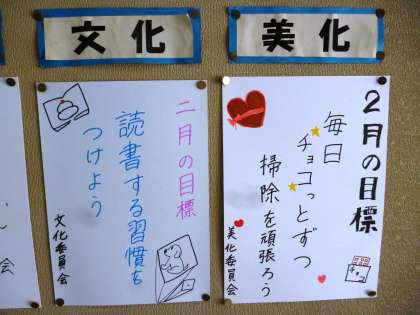 文化
二月の目標
読書する習慣を
つけよう
文化委員会
美化
2月の目標
毎日
チョコっとずつ
掃除を頑張ろう
美化委員会
チョコ
会